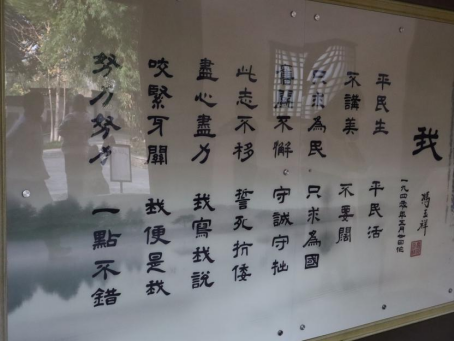 我
馮玉祥
一九四〇年五月
平民生 平民活
不講美 不要闊
只求為民 只求為國
奮鬥不懈 守誠守拙
此志不移 誓死抗倭
盡心盡力 我寫我說
咬緊牙關 我便是我
努力努力 一點不錯